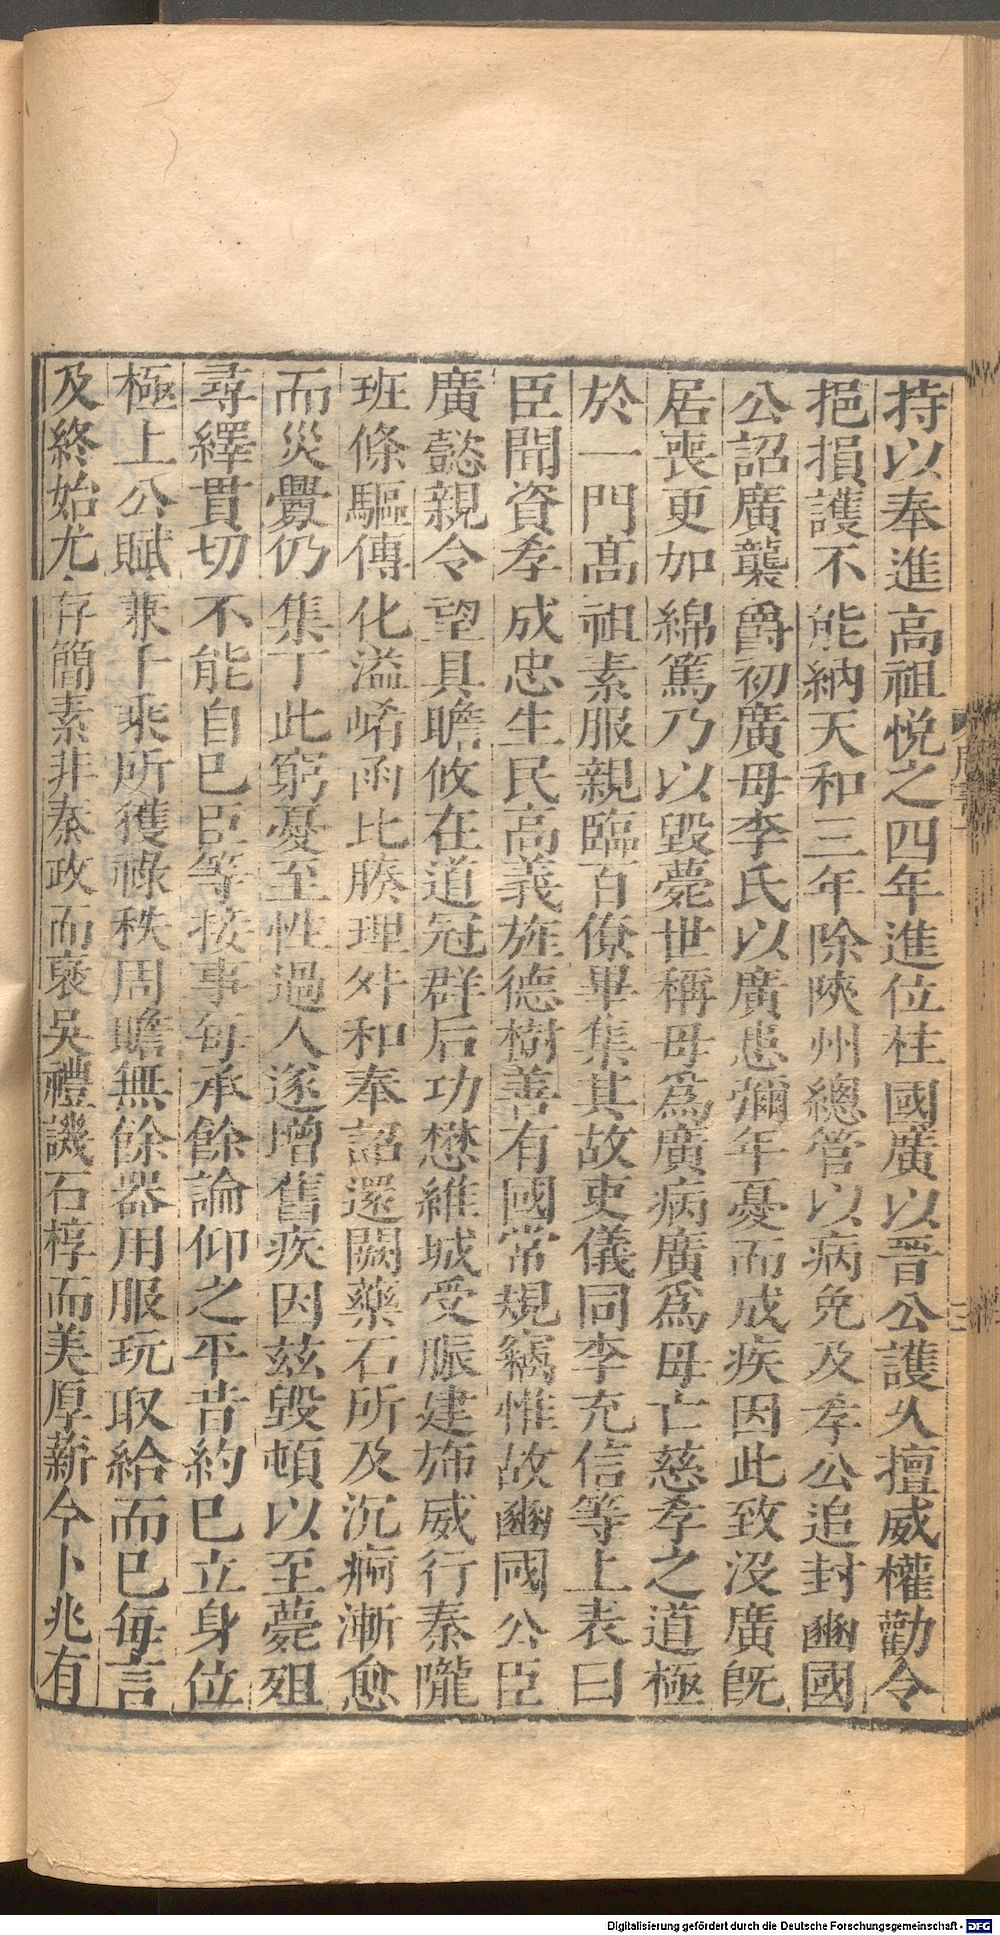 持以奉進高祖悅之四年進位柱國廣以晉公護久擅威權勸令
挹損護不能納天和三年除陝州總管以病免及孝公追封豳國
公詔廣襲爵初廣母李氏以廣患彌年憂而成疾因此致沒廣旣
居喪更加綿篤乃以毀薨世稱母爲廣病廣爲母亡慈孝之道極
於一門高祖素服親臨百僚畢集其故吏儀同李充信等上表曰
臣聞資孝成忠生民高義旌德樹善有國常規竊惟故豳國公臣
廣懿親令望具瞻攸在道冠群后功懋維城受脤建斾威行秦隴
班條驅傳化溢崤凾比腠理舛和奉詔還闕藥石所及沉痾漸愈
而災釁仍集丁此窮憂至性過人遂增舊疾因玆毀頓以至薨殂
尋繹貫切不能自已臣等接事每承餘論仰之平昔約已立身位
極上公賦兼千乘所獲祿秩周贍無餘器用服玩取給而已每言
及終始尤存簡素非秦政而褒吳禮譏石椁而美厚薪今卜兆有
周書十
三
Digitalisierung gefördert durch die Deutsche Forschungsgemeinschaft - DFG